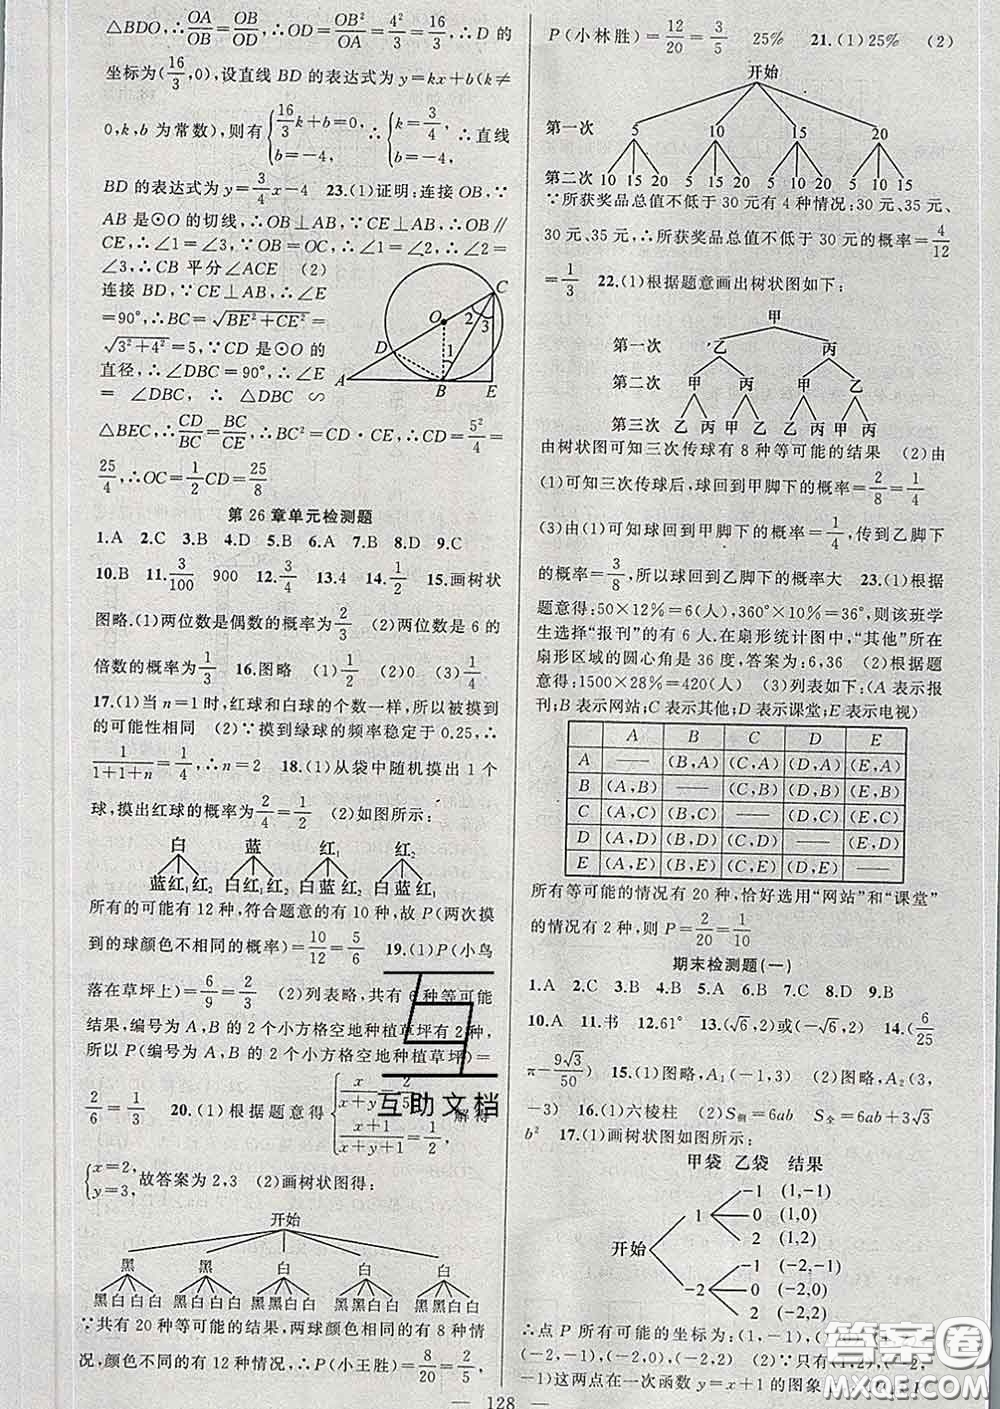 △BDO,∴OA/OB=OB/OD,∴OD=OB²/OA=4²/3=16/3,∴D 的
坐标为(16/3,0),设直线 BD 的表达式为 y=kx+b(k≠
0,k,b 为常数),则有{16/3k+b=0, b=-4, ∴{k=3/4, b=-4, ∴直线
BD 的表达式为 y=3/4x-4 23.(1)证明:连接 OB,∵
AB 是⊙O 的切线,∴OB⊥AB,∵CE⊥AB,∴OB∥
CE,∴∠1=∠3,∵OB=OC,∴∠1=∠2,∴∠2=
∠3,∴CB 平分∠ACE (2)
连接 BD,∵CE⊥AB,∴∠E
=90°,∴BC=√(BE²+CE²)=
√(3²+4²)=5,∵CD 是⊙O 的
直径,∴∠DBC=90°,∴∠E
=∠DBC,∴△DBC∽
△BEC,∴CD/BC=BC/CE,∴BC²=CD·CE,∴CD=5²/4=
25/4,∴OC=1/2CD=25/8
C
O
2
3
D
1
A
B
E
第 26 章单元检测题
1.A 2.C 3.B 4.D 5.B 6.A 7.B 8.D 9.C
10.B 11.3/100 900 12.3/4 13.4 14.1/2 15.画树状
图略.(1)两位数是偶数的概率为2/3 (2)两位数是 6 的
倍数的概率为1/3 16.图略 (1)1/2 (2)0 (3)1/4
17.(1)当 n=1 时,红球和白球的个数一样,所以被摸到
的可能性相同 (2)∵摸到绿球的频率稳定于 0.25,∴
1/(1+1+n)=1/4,∴n=2 18.(1)从袋中随机摸出 1 个
球,摸出红球的概率为2/4=1/2 (2)如图所示:
白 蓝 红₁ 红₂
蓝红₁红₂ 白红₁红₂ 白蓝红₂ 白蓝红₁
所有的可能有 12 种,符合题意的有 10 种,故 P(两次摸
到的球颜色不相同的概率)=10/12=5/6 19.(1)P(小鸟
落在草坪上)=6/9=2/3 (2)列表略,共有 6 种等可能
结果,编号为 A,B 的 2 个小方格空地种植草坪有 2 种,
所以 P(编号为 A,B 的 2 个小方格空地种植草坪)=
2/6=1/3 20.(1)根据题意得{x/(x+y)=2/5, (x+1)/(x+y+1)=1/2, 解得
{x=2, y=3, 故答案为 2,3 (2)画树状图得:
开始
黑 黑 白 白 白
黑白白白 黑白白白 黑黑白白 黑黑白白 黑黑白白
∵共有 20 种等可能的结果,两球颜色相同的有 8 种情
况,颜色不同的有 12 种情况,∴P(小王胜)=8/20=2/5,
P(小林胜)=12/20=3/5 25% 21.(1)25% (2)
开始
第一次 5 10 15 20
第二次 10 15 20 5 15 20 5 10 20 5 10 15
∵所获奖品总值不低于 30 元有 4 种情况:30 元、35 元、
30 元、35 元,∴所获奖品总值不低于 30 元的概率=4/12
=1/3 22.(1)根据题意画出树状图如下:
甲
第一次 乙 丙
第二次 甲 丙 甲 乙
第三次 乙 丙 甲 乙 乙 丙 甲 丙
由树状图可知三次传球有 8 种等可能的结果 (2)由
(1)可知三次传球后,球回到甲脚下的概率=2/8=1/4
(3)由(1)可知球回到甲脚下的概率=1/4,传到乙脚下的
概率=3/8,所以球回到乙脚下的概率大 23.(1)根据
题意得:50×12%=6(人),360°×10%=36°,则该班学
生选择“报刊”的有 6 人.在扇形统计图中,“其他”所在
扇形区域的圆心角是 36 度,答案为:6,36 (2)根据题
意得:1500×28%=420(人) (3)列表如下:(A 表示报
刊;B 表示网站;C 表示其他;D 表示课堂;E 表示电视)
A B C D E
A —— (B,A) (C,A) (D,A) (E,A)
B (A,B) —— (C,B) (D,B) (E,B)
C (A,C) (B,C) —— (D,C) (E,C)
D (A,D) (B,D) (C,D) —— (E,D)
E (A,E) (B,E) (C,E) (D,E) ——
所有等可能的情况有 20 种,恰好选用“网站”和“课堂”
的情况有 2 种,则 P=2/20=1/10
期末检测题(一)
1.A 2.C 3.B 4.A 5.B 6.B 7.C 8.D 9.B
10.A 11.书 12.61° 13.(√6,2)或(-√6,2) 14.(6/25
π-9√3/50) 15.(1)图略,A₁(-1,3) (2)图略,A₂(3,
-3) 16.(1)六棱柱 (2)S侧=6ab S全=6ab+3√3
b² 17.(1)画树状图如图所示:
甲袋 乙袋 结果
-1 (1,-1)
1 0 (1,0)
2 (1,2)
开始
-1 (-2,-1)
-2 0 (-2,0)
2 (-2,2)
∴点 P 所有可能的坐标为:(1,-1),
-1),(-2,0),(-2,2) (2)∵只有(1,2),(-2,
-1)这两点在一次函数 y=x+1 的图象
— 128 —
互助文档
答案卷